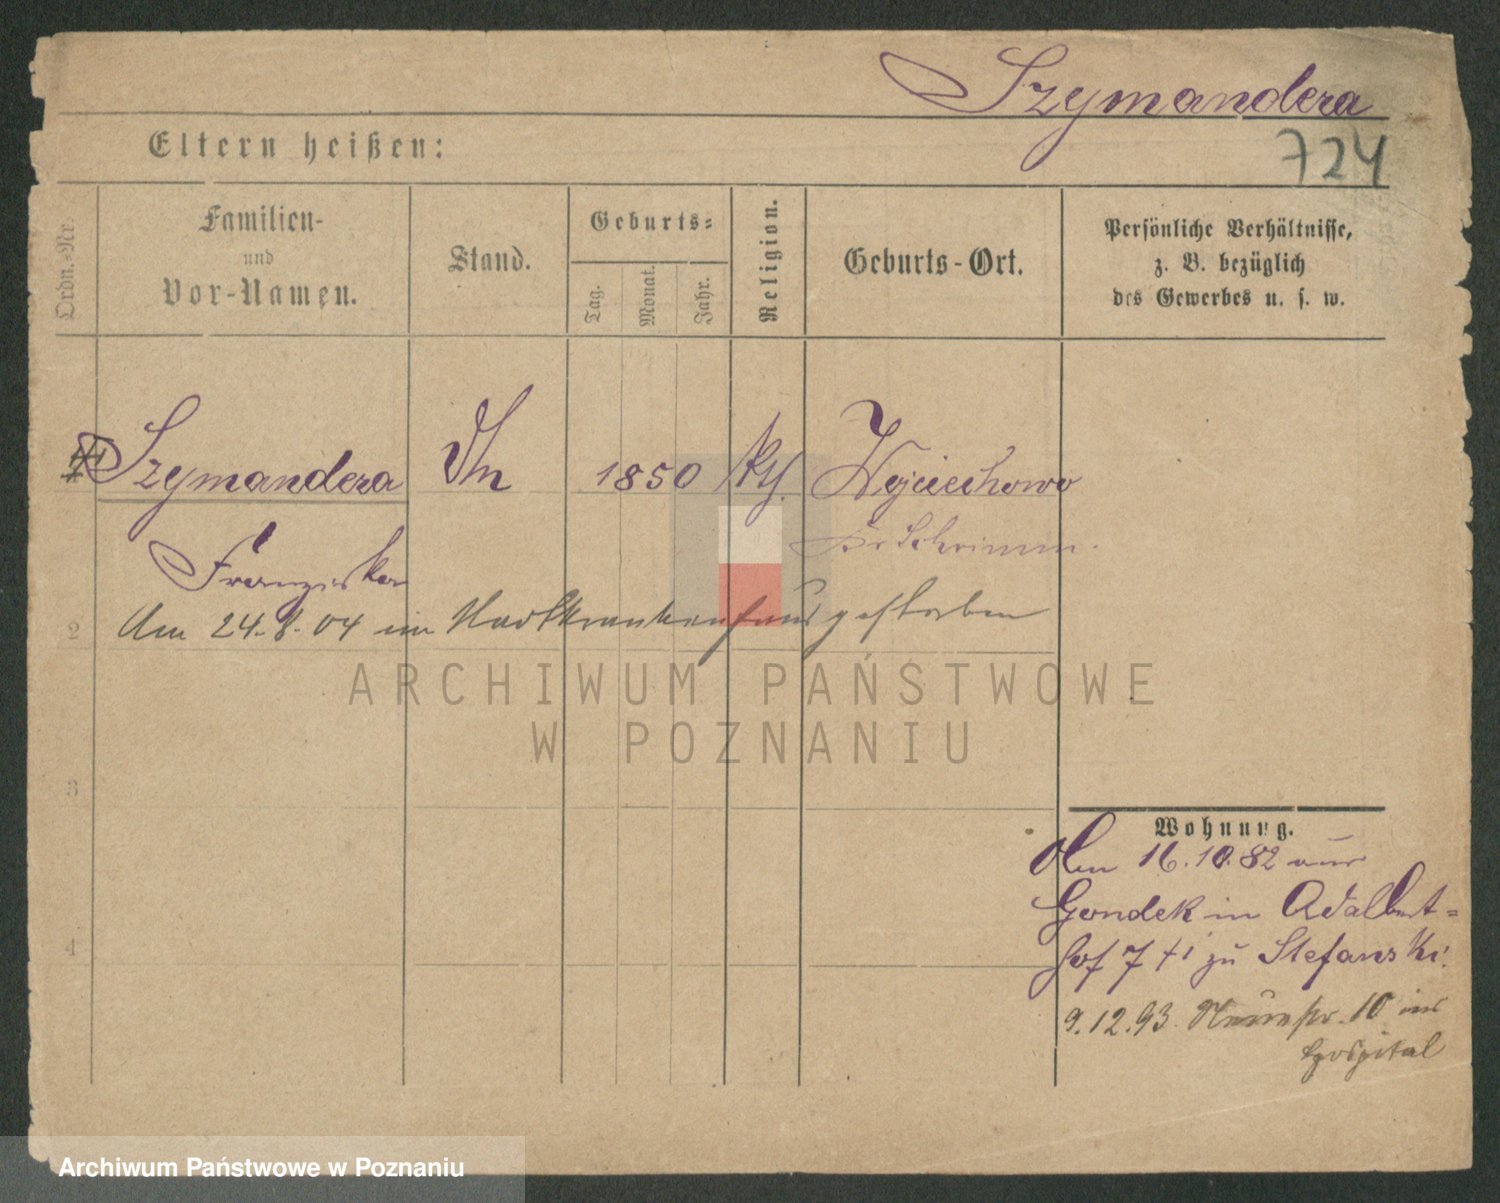 Szymandera
724
Eltern heißen:
Ordn.-Nr.
Familien-
und
Vor-Namen.
Stand.
Geburts-
Tag.
Monat.
Jahr.
Religion.
Geburts-Ort.
Persönliche Verhältnisse,
z. B. bezüglich
des Gewerbes u. s. w.
Szymandera 1850 kth. Wojciechowo
Franziska Kr Schrimm.
2 Am 24.8.04 im Stadtkrankenhaus gestorben
ARCHIWUM PAŃSTWOWE
W POZNANIU
3
4
Wohnung.
Den 16.10.82 aus
Gondek in Adalbert-
hof 7 zu Stefanski.
9.12.93 10 ins
Hospital
Archiwum Państwowe w Poznaniu